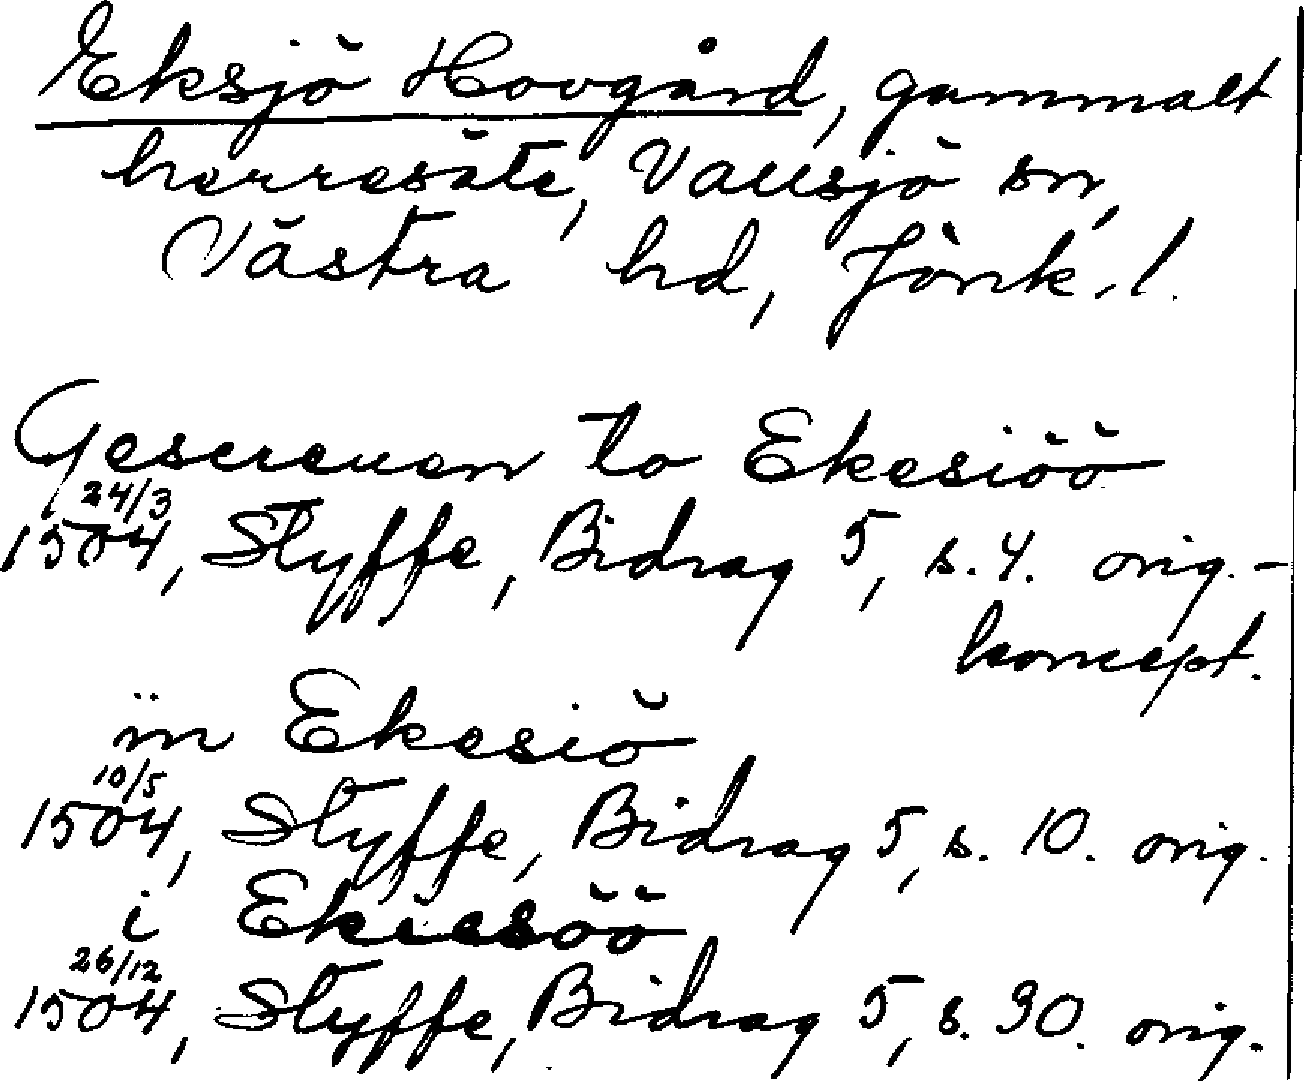 Eksjö Hovgård, gammalt
herresäte, Vallsjö sn,
Västra hd, Jönk. l.
Gescreuen to Ekesiöö
24/3
1504, Styffe, Bidrag 5, s. 4. orig.-
koncept.
in Ekesiö
10/5
1504, Styffe, Bidrag 5, s. 10. orig.
i Ekiesöö
26/12
1504, Styffe, Bidrag 5, s. 30. orig.